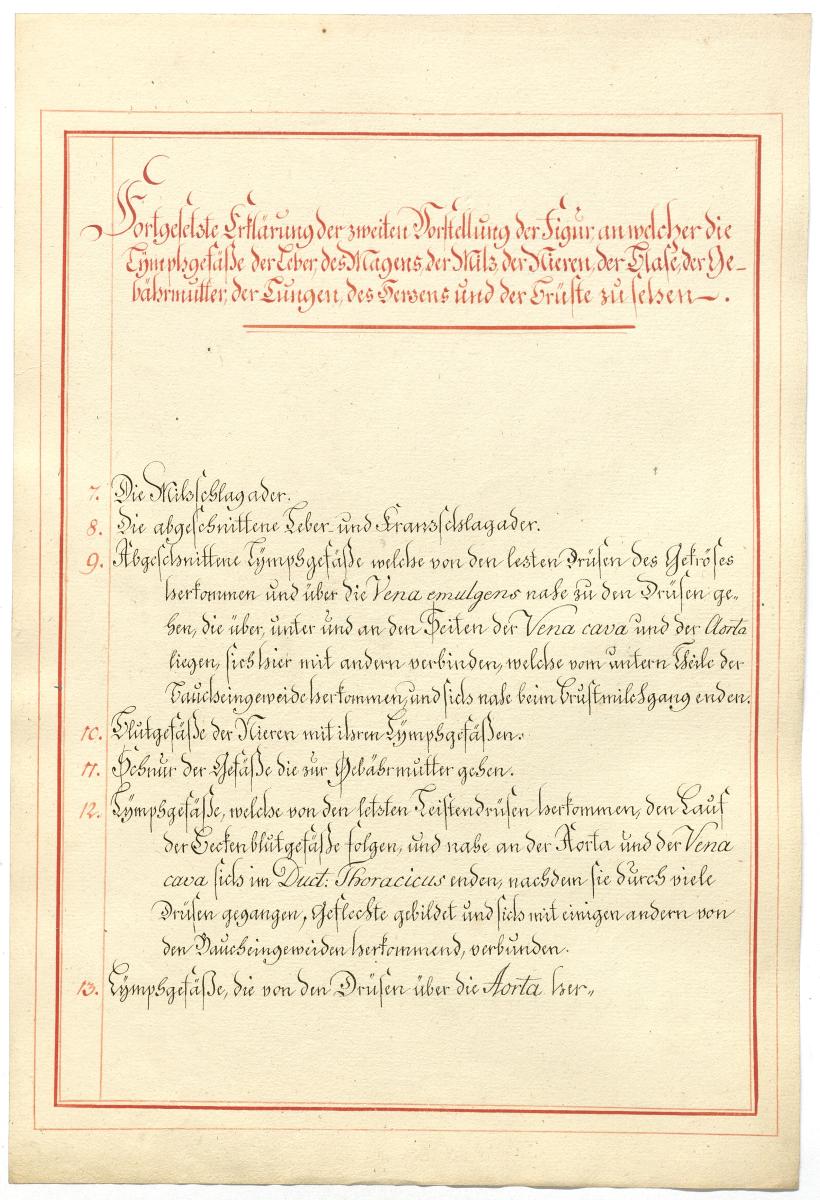 Fortgesetzte Erklärung der zweiten Vorstellung der Figur, an welcher die
Lÿmphgefäße der Leber, des Magens, der Milz, der Nieren, der Blase, der Ge-
bährmutter, der Lungen, des Herzens und der Brüste zu sehen.
7. Die Milzschlagader.
8. Die abgeschnittene Leber- und Kranzschlagader.
9. Abgeschnittene Lÿmphgefäße welche von den lezten Drüsen des Gekröses
herkommen und über die Vena emulgens nahe zu den Drüsen ge-
hen, die über, unter und an den Seiten der Vena cava und der Aorta
liegen, sich hier mit andern verbinden, welche vom untern Theile der
Baucheingeweide herkommen, und sich nahe beim Brustmilchgang enden.
10. Blutgefäße der Nieren mit ihren Lÿmphgefäßen.
11. Schnur der Gefäße die zur Gebährmutter gehen.
12. Lÿmphgefäße, welche von den letzten Leistendrüsen herkommen, den Lauf
der Beckenblutgefäße folgen, und nahe an der Aorta und der Vena
cava sich im Duct: Thoracicus enden, nachdem sie durch viele
Drüsen gegangen, Geflechte gebildet und sich mit einigen andern von
den Baucheingeweiden herkommend, verbunden.
13. Lÿmphgefäße, die von den Drüsen über die Aorta her„